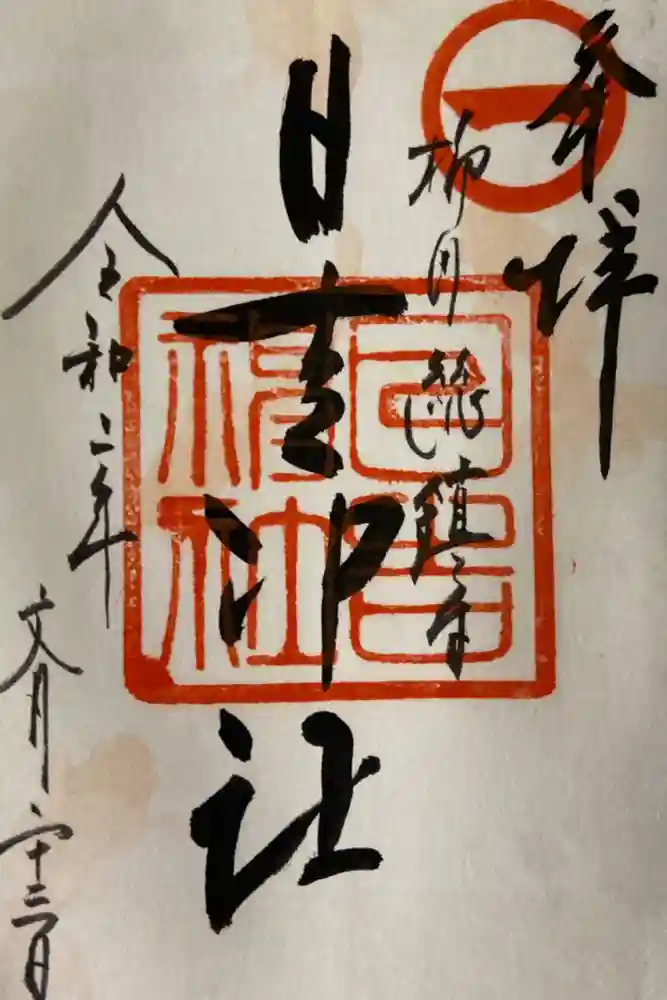 奉拝
柳川総鎮守
日吉神社
日吉神社
令和二年
文月二十三日